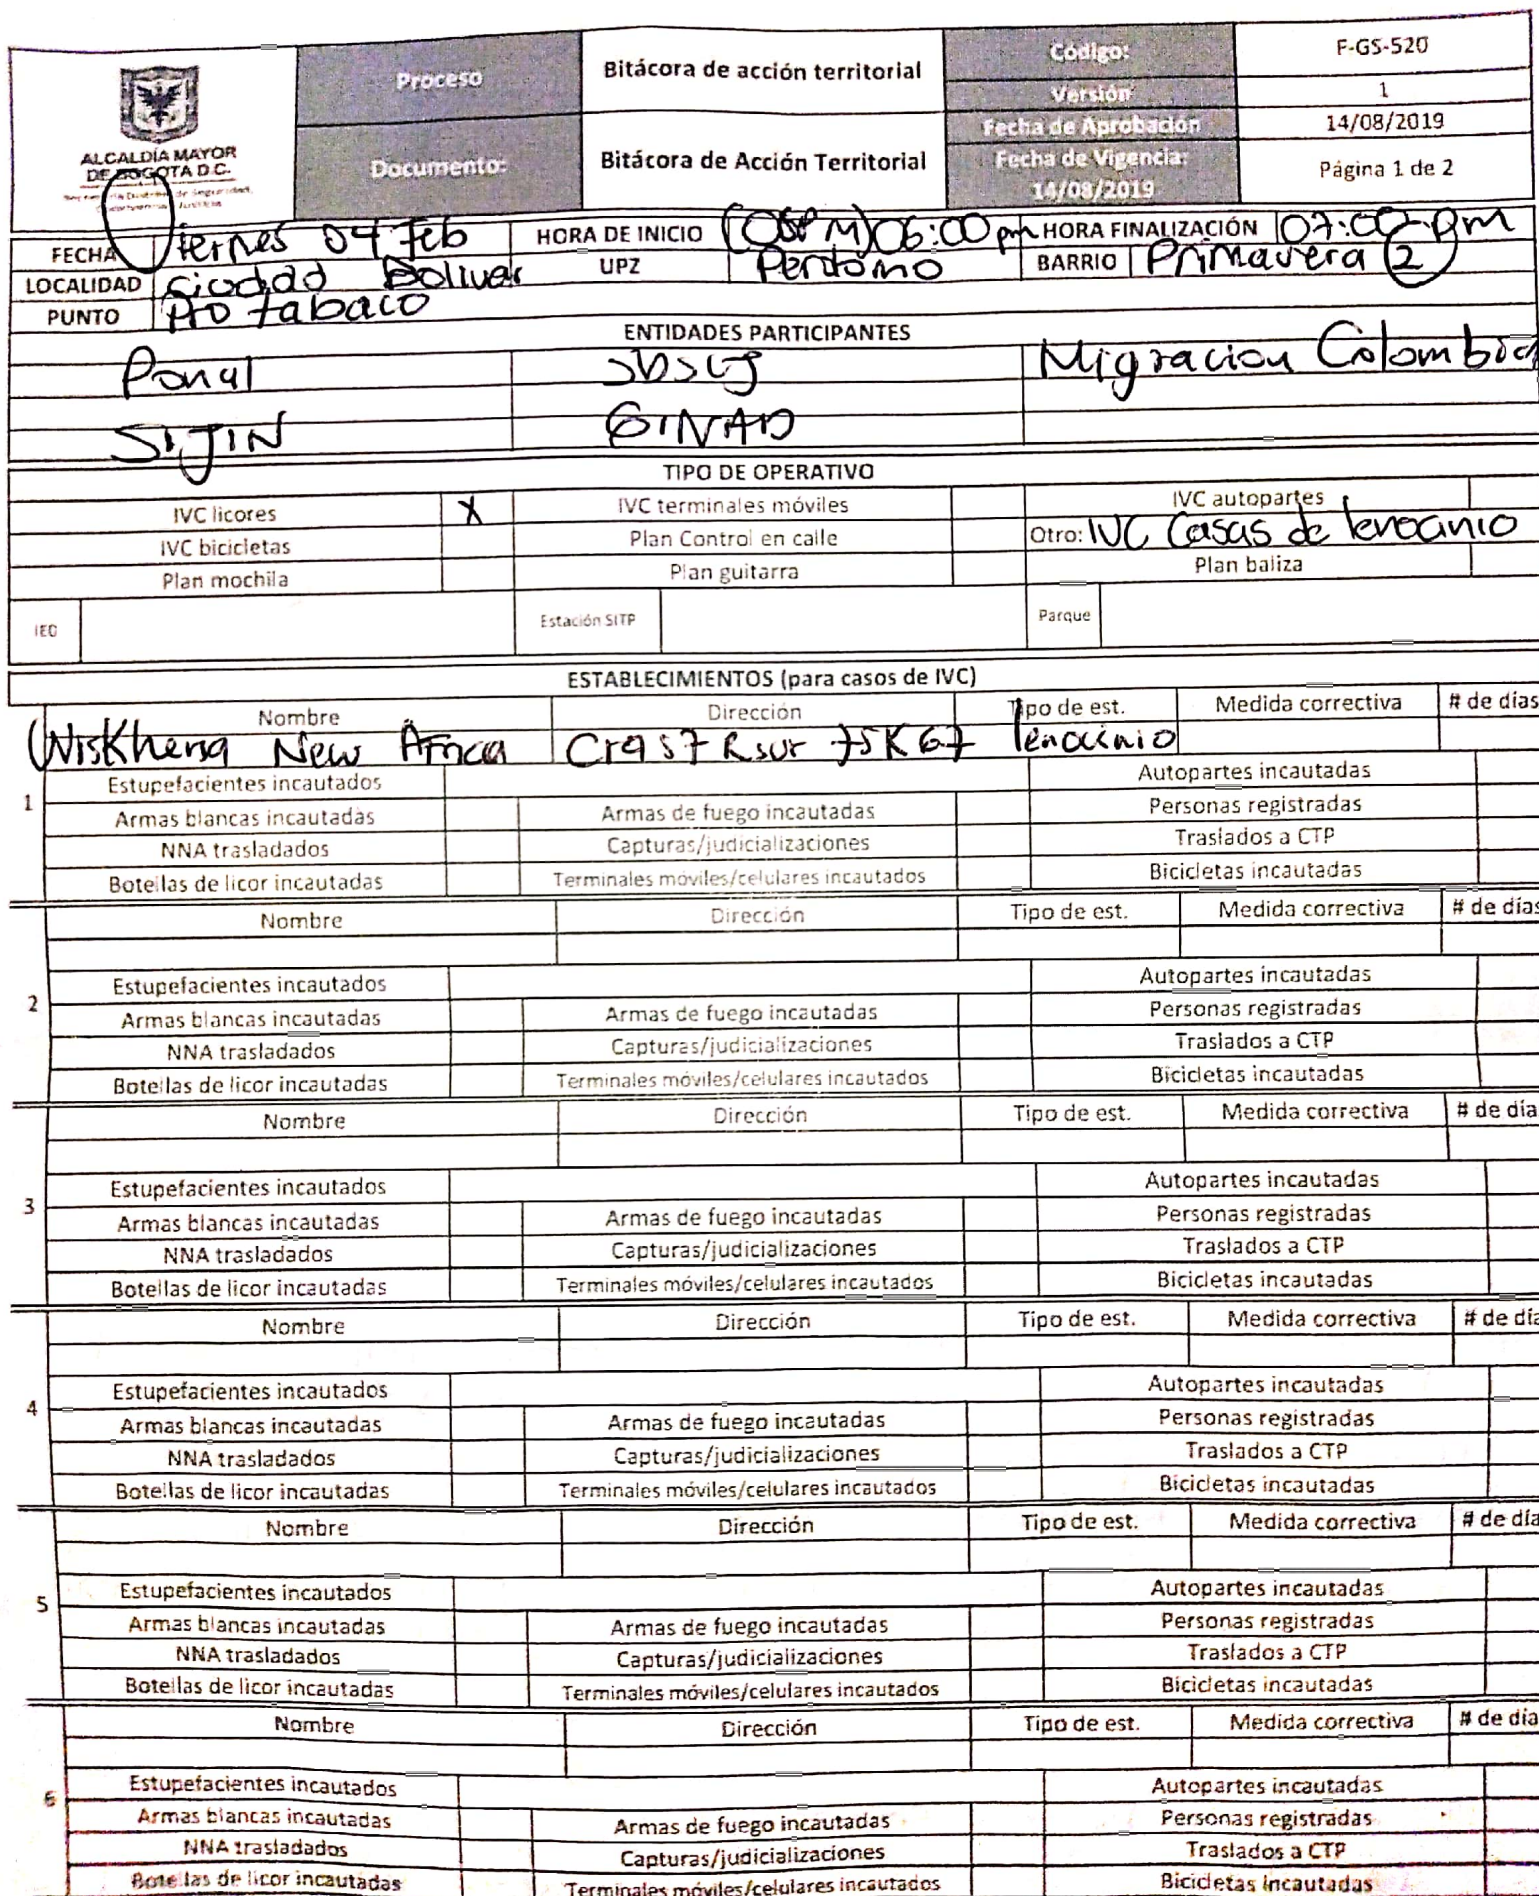 Proceso
Bitácora de acción territorial
Código:
F-GS-520
Versión
1
Fecha de Aprobación
14/08/2019
ALCALDÍA MAYOR
DE BOGOTA D.C.
Documento:
Bitácora de Acción Territorial
Fecha de Vigencia:
14/08/2019
Página 1 de 2
FECHA Viernes 04 Feb HORA DE INICIO (05PM) 06:00 pm HORA FINALIZACIÓN 07:00 pm
LOCALIDAD Ciudad Bolivar UPZ Perdomo BARRIO Primavera 2
PUNTO Pro tabaco
ENTIDADES PARTICIPANTES
Ponal SDSCJ Migracion Colombia
SIJIN GINAD
TIPO DE OPERATIVO
IVC licores X IVC terminales móviles IVC autopartes
IVC bicicletas Plan Control en calle Otro: IVC Casas de lenocinio
Plan mochila Plan guitarra Plan baliza
IED Estación SITP Parque
ESTABLECIMIENTOS (para casos de IVC)
Nombre Dirección Tipo de est. Medida correctiva # de días
Wiskheria New Africa Cra 57 R sur 75K67 lenocinio
1
Estupefacientes incautados Autopartes incautadas
Armas blancas incautadas Armas de fuego incautadas Personas registradas
NNA trasladados Capturas/judicializaciones Traslados a CTP
Botellas de licor incautadas Terminales móviles/celulares incautados Bicicletas incautadas
Nombre Dirección Tipo de est. Medida correctiva # de días
2
Estupefacientes incautados Autopartes incautadas
Armas blancas incautadas Armas de fuego incautadas Personas registradas
NNA trasladados Capturas/judicializaciones Traslados a CTP
Botellas de licor incautadas Terminales móviles/celulares incautados Bicicletas incautadas
Nombre Dirección Tipo de est. Medida correctiva # de día
3
Estupefacientes incautados Autopartes incautadas
Armas blancas incautadas Armas de fuego incautadas Personas registradas
NNA trasladados Capturas/judicializaciones Traslados a CTP
Botellas de licor incautadas Terminales móviles/celulares incautados Bicicletas incautadas
Nombre Dirección Tipo de est. Medida correctiva # de día
4
Estupefacientes incautados Autopartes incautadas
Armas blancas incautadas Armas de fuego incautadas Personas registradas
NNA trasladados Capturas/judicializaciones Traslados a CTP
Botellas de licor incautadas Terminales móviles/celulares incautados Bicicletas incautadas
Nombre Dirección Tipo de est. Medida correctiva # de día
5
Estupefacientes incautados Autopartes incautadas
Armas blancas incautadas Armas de fuego incautadas Personas registradas
NNA trasladados Capturas/judicializaciones Traslados a CTP
Botellas de licor incautadas Terminales móviles/celulares incautados Bicicletas incautadas
Nombre Dirección Tipo de est. Medida correctiva # de día
6
Estupefacientes incautados Autopartes incautadas
Armas blancas incautadas Armas de fuego incautadas Personas registradas
NNA trasladados Capturas/judicializaciones Traslados a CTP
Botellas de licor incautadas Terminales móviles/celulares incautados Bicicletas incautadas